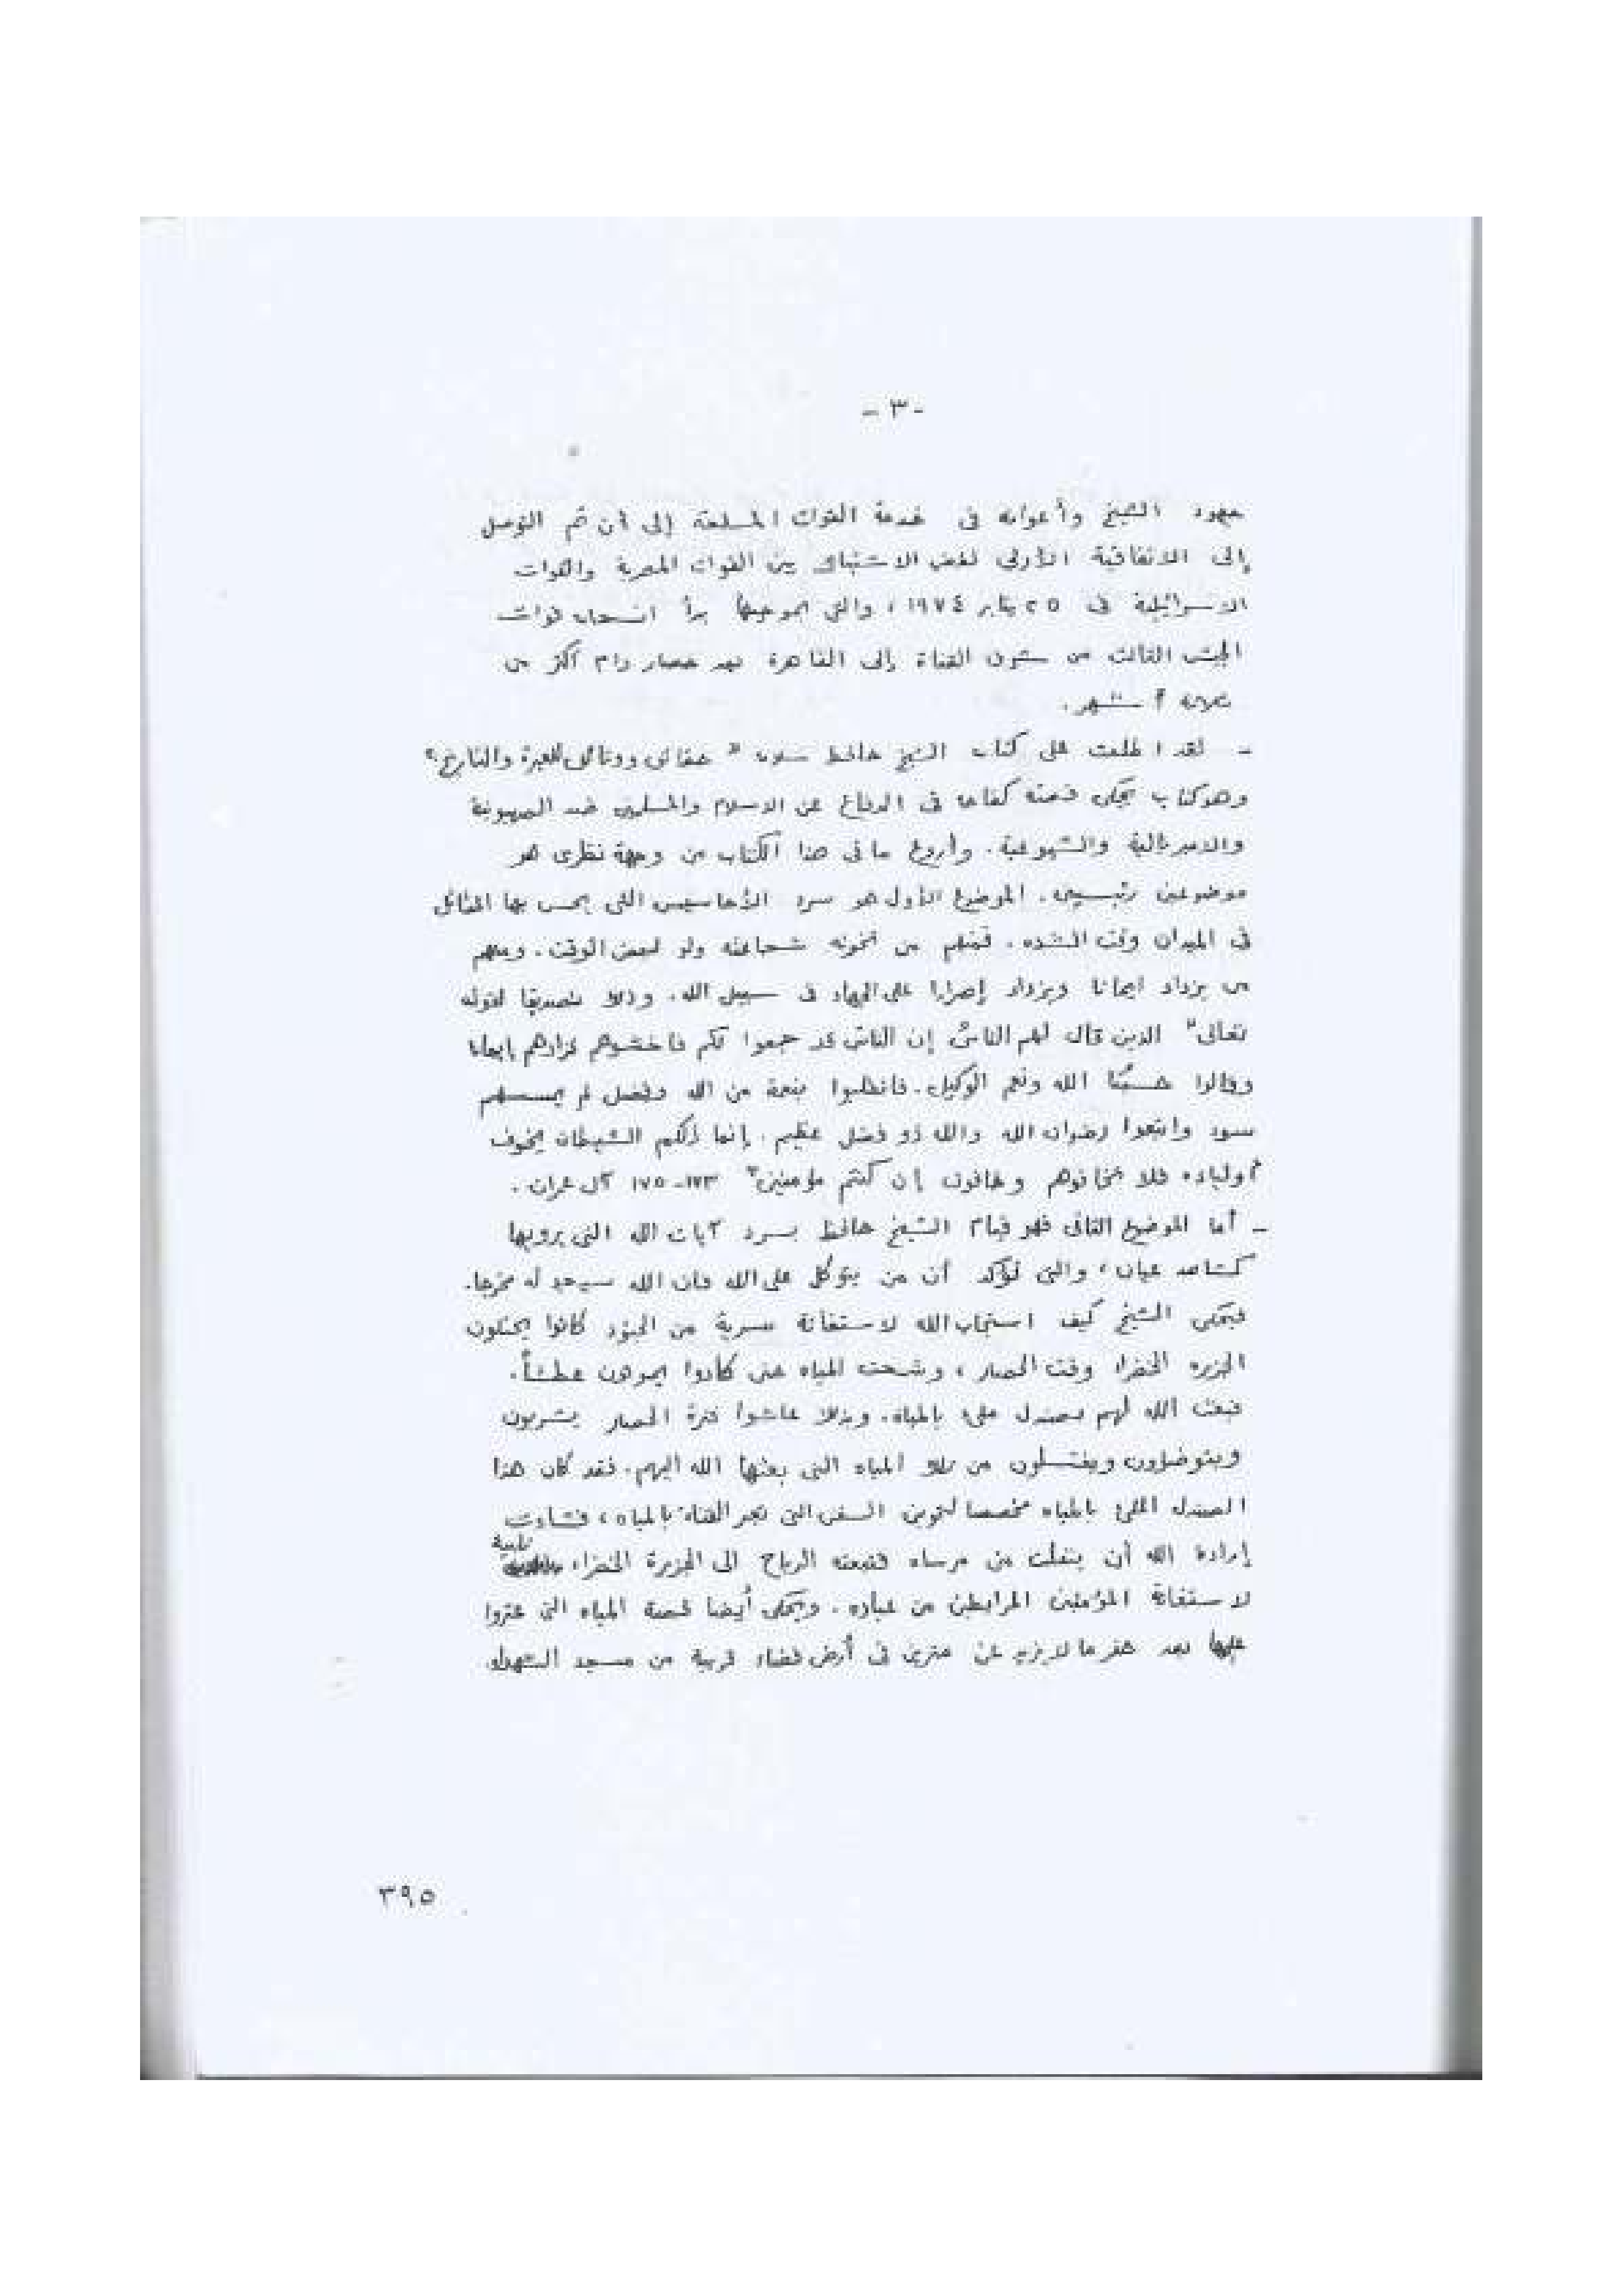 - ٣ -
جهود الشيخ وأعوانه فى خدمة القوات المسلحة إلى أن تم التوصل
إلى الاتفاقية الأولى لفض الاشتباك بين القوات المصرية والقوات
الاسرائيلية فى ٢٥ يناير ١٩٧٤، والتى بموجبها بدأ انسحاب قوات
الجيش الثالث من شرق القناة إلى القاهرة بعد حصار دام أكثر من
ثلاثة أشهر.
- لقد اطلعت على كتاب الشيخ حافظ سلامه " حقائق ووثائق للعبرة والتاريخ"
وهو كتاب يحكى قصة كفاحه فى الدفاع عن الاسلام والمسلمين ضد الصهيونة
والامبريالية والشيوعية. وأروع ما فى هذا الكتاب من وجهة نظرى هو
موضوعين رئيسيين. الموضوع الأول هو سرد الأحاسيس التى يحس بها المقاتل
فى الميدان وقت الشده. فمنهم من تخونه شجاعته ولو لبعض الوقت. ومنهم
من يزداد ايمانا ويزداد إصرارا على الجهاد فى سبيل الله. وذلك تصديقا لقوله
تعالى " الذين قال لهم الناسُ إن الناسَ قد جمعوا لكم فاخشوهم فزادهم إيمانا
وقالوا حسبُنا الله ونعم الوكيل. فانقلبوا بنعمة من الله وفضل لم يمسسهم
سوء واتبعوا رضوان الله والله ذو فضل عظيم. إنما ذلكم الشيطان يخوف
أولياءه فلا تخافوهم وخافون إن كنتم مؤمنين" ١٧٣-١٧٥ آل عمران.
- أما الموضوع الثانى فهو قيام الشيخ حافظ بسرد آيات الله التى يرويها
كشاهد عيان، والتى تؤكد أن من يتوكل على الله فان الله سيجعل له مخرجا.
فيحكى الشيخ كيف استجاب الله لاستغاثة سرية من الجنود كانوا يحتلون
الجزيره الخضراء وقت الحصار، وشحت المياه حتى كادوا يموتون عطشاً.
فبعث الله لهم بصندل ملئ بالمياه. وبذلك عاشوا فترة الحصار يشربون
ويتوضأون ويغتسلون من تلك المياه التى بعثها الله اليهم. فقد كان هذا
الصندل الملئ بالمياه مخصصا لتموين السفن التى تعبر القناة بالمياه، فشاءت
إرادة الله أن ينفلت من مرساه فتدفعه الرياح الى الجزيرة الخضراء تلبية
لاستغاثة المؤمنين المرابطين من عباده. ويحكى أيضا قصة المياه التى عثروا
عليها بعد حفر ما لا يزيد عن مترين فى أرض فضاء قريبة من مسجد الشهداء.
٣٩٥